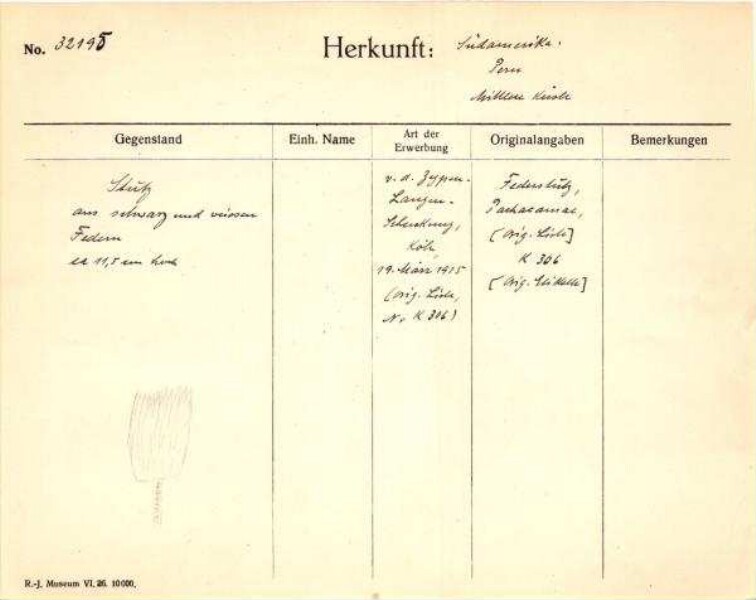 No. 32195
Herkunft: Südamerika.
Peru
Mittlere Küste
Gegenstand
Einh. Name
Art der
Erwerbung
Originalangaben
Bemerkungen
Stutz
aus schwarz und weissen
Federn
ca 11,5 cm hoch
v. d. Zypen-
Langen-
Schenkung,
Köln,
19. März 1915
(Orig. Liste,
No K 306)
Federstutz,
Pachacamac,
[Orig. Liste]
K 306
[Orig. Etikette]
R.-J. Museum VI. 26. 10000.